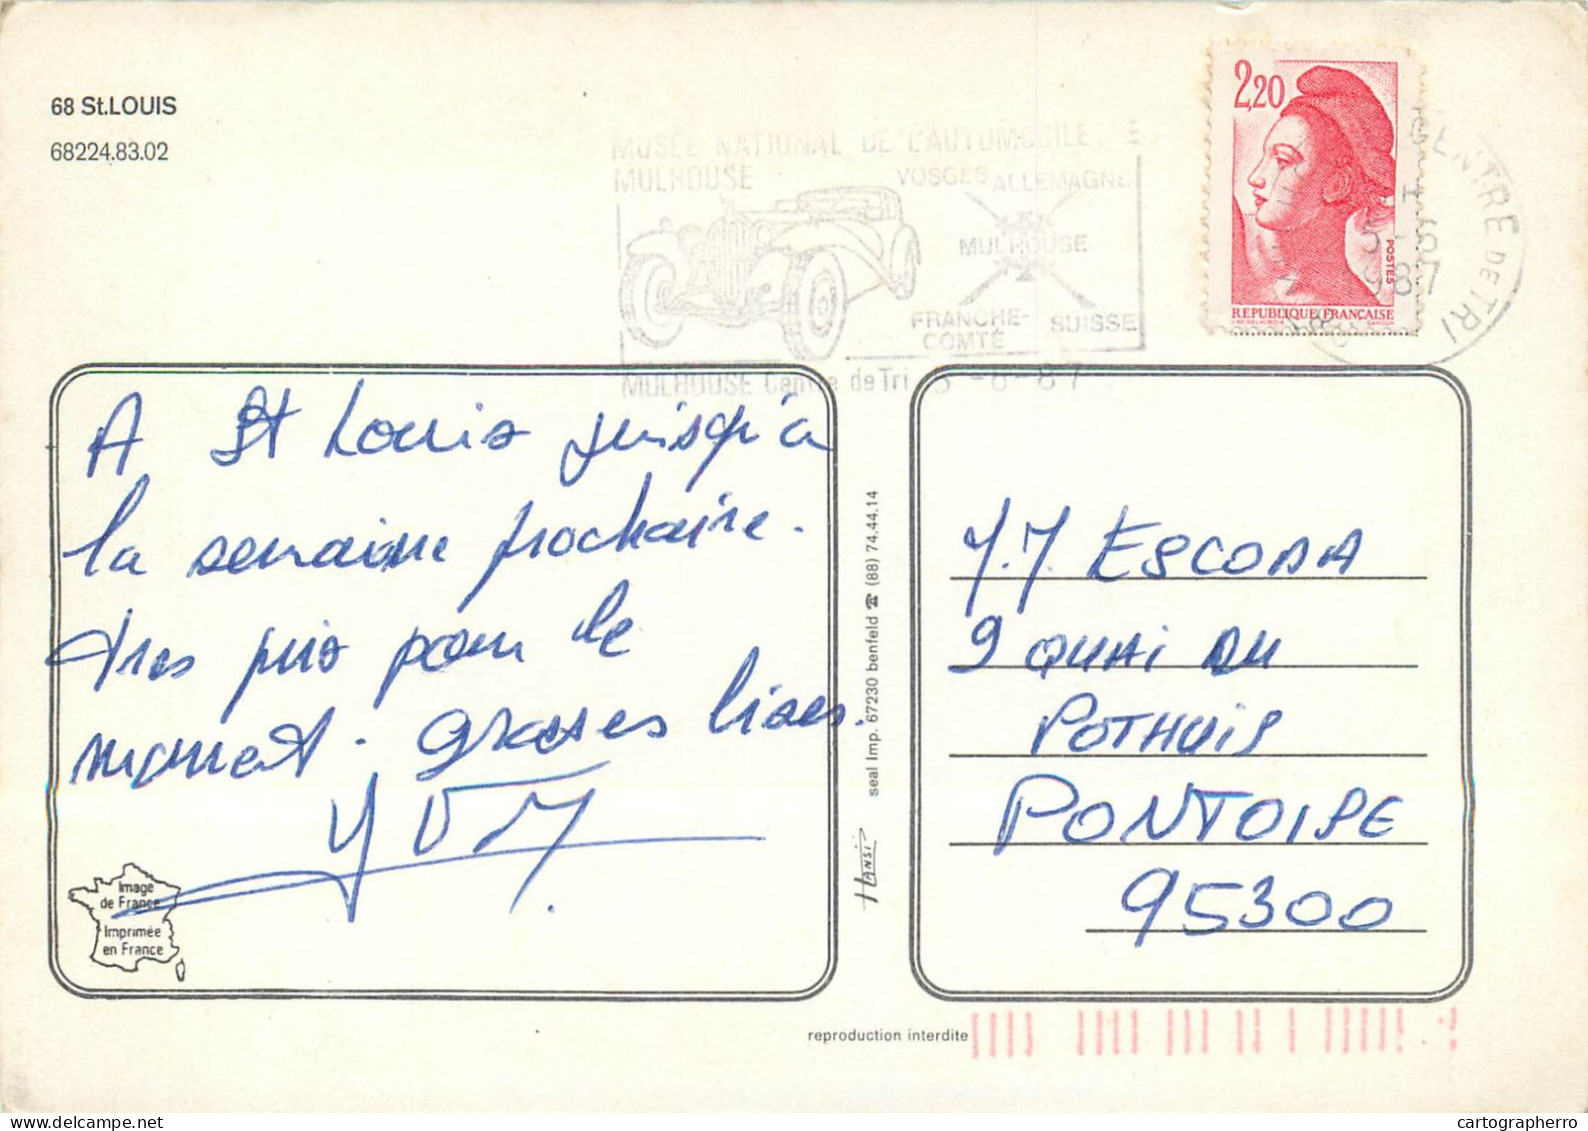 68 St.LOUIS
68224.83.02
MUSÉE NATIONAL DE L'AUTOMOBILE
MULHOUSE
VOSGES ALLEMAGNE
MULHOUSE
FRANCHE-
COMTÉ
SUISSE
MULHOUSE Centre de Tri 5-6-87
2,20
POSTES
REPUBLIQUE FRANÇAISE
CENTRE DE TRI
5-6
1987
A St Louis jusqu'à
la semaine prochaine.
tres pris pour le
moment. grosses bises.
Image
de France
Imprimée
en France
seal Imp. 67230 benfeld ☎ (88) 74.44.14
HANSI
J.J. ESCODA
9 QUAI DU
POTHUIS
PONTOISE
95300
reproduction interdite
cartographerro